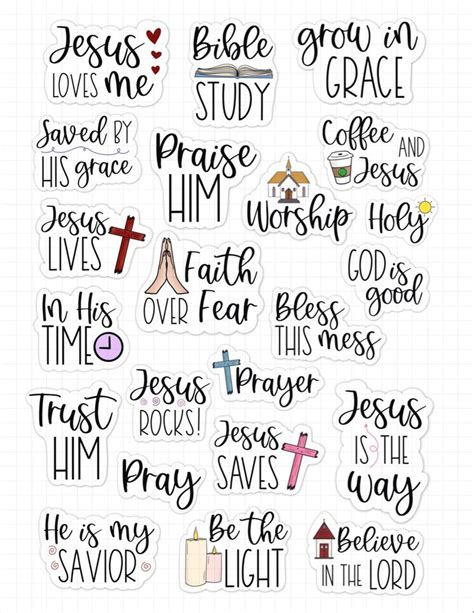 Jesus
LOVES me
Bible
STUDY
grow in
GRACE
Saved BY
HIS grace
Praise
HIM
Coffee AND
Jesus
Worship
Holy
Jesus
LIVES
Faith
OVER Fear
GOD is
good
In His
TIME
Bless
THIS mess
Jesus
ROCKS!
Prayer
Trust
HIM
Pray
Jesus
SAVES
Jesus
IS THE
Way
He is my
SAVIOR
Be the
LIGHT
Believe
IN THE LORD